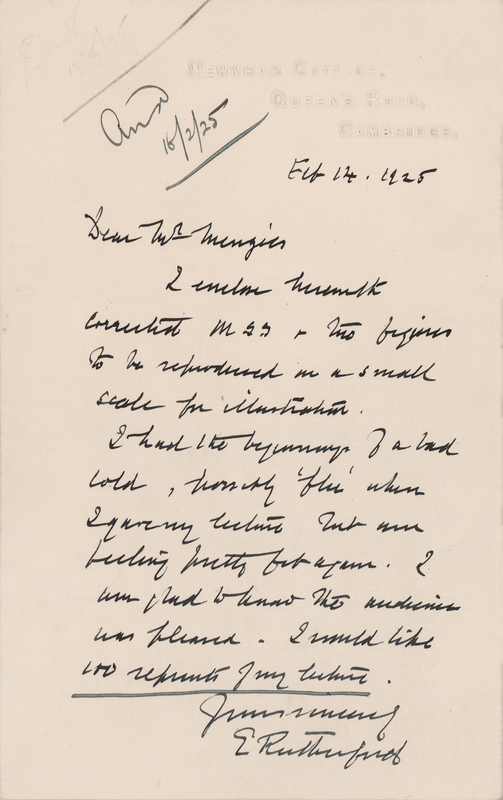 NEWNHAM COTTAGE,
QUEEN'S ROAD,
CAMBRIDGE.
Ansd
16/2/25
Feb 14. 1925
Dear Mr Menzies
I enclose herewith
corrected MSS & two figures
to be reproduced on a small
scale for illustration.
I had the beginnings of a bad
cold, possibly 'flu' when
I gave my lecture but am
feeling pretty fit again. I
am glad to know the audience
was pleased. I would like
100 reprints of my lecture.
Yours sincerely
E Rutherford